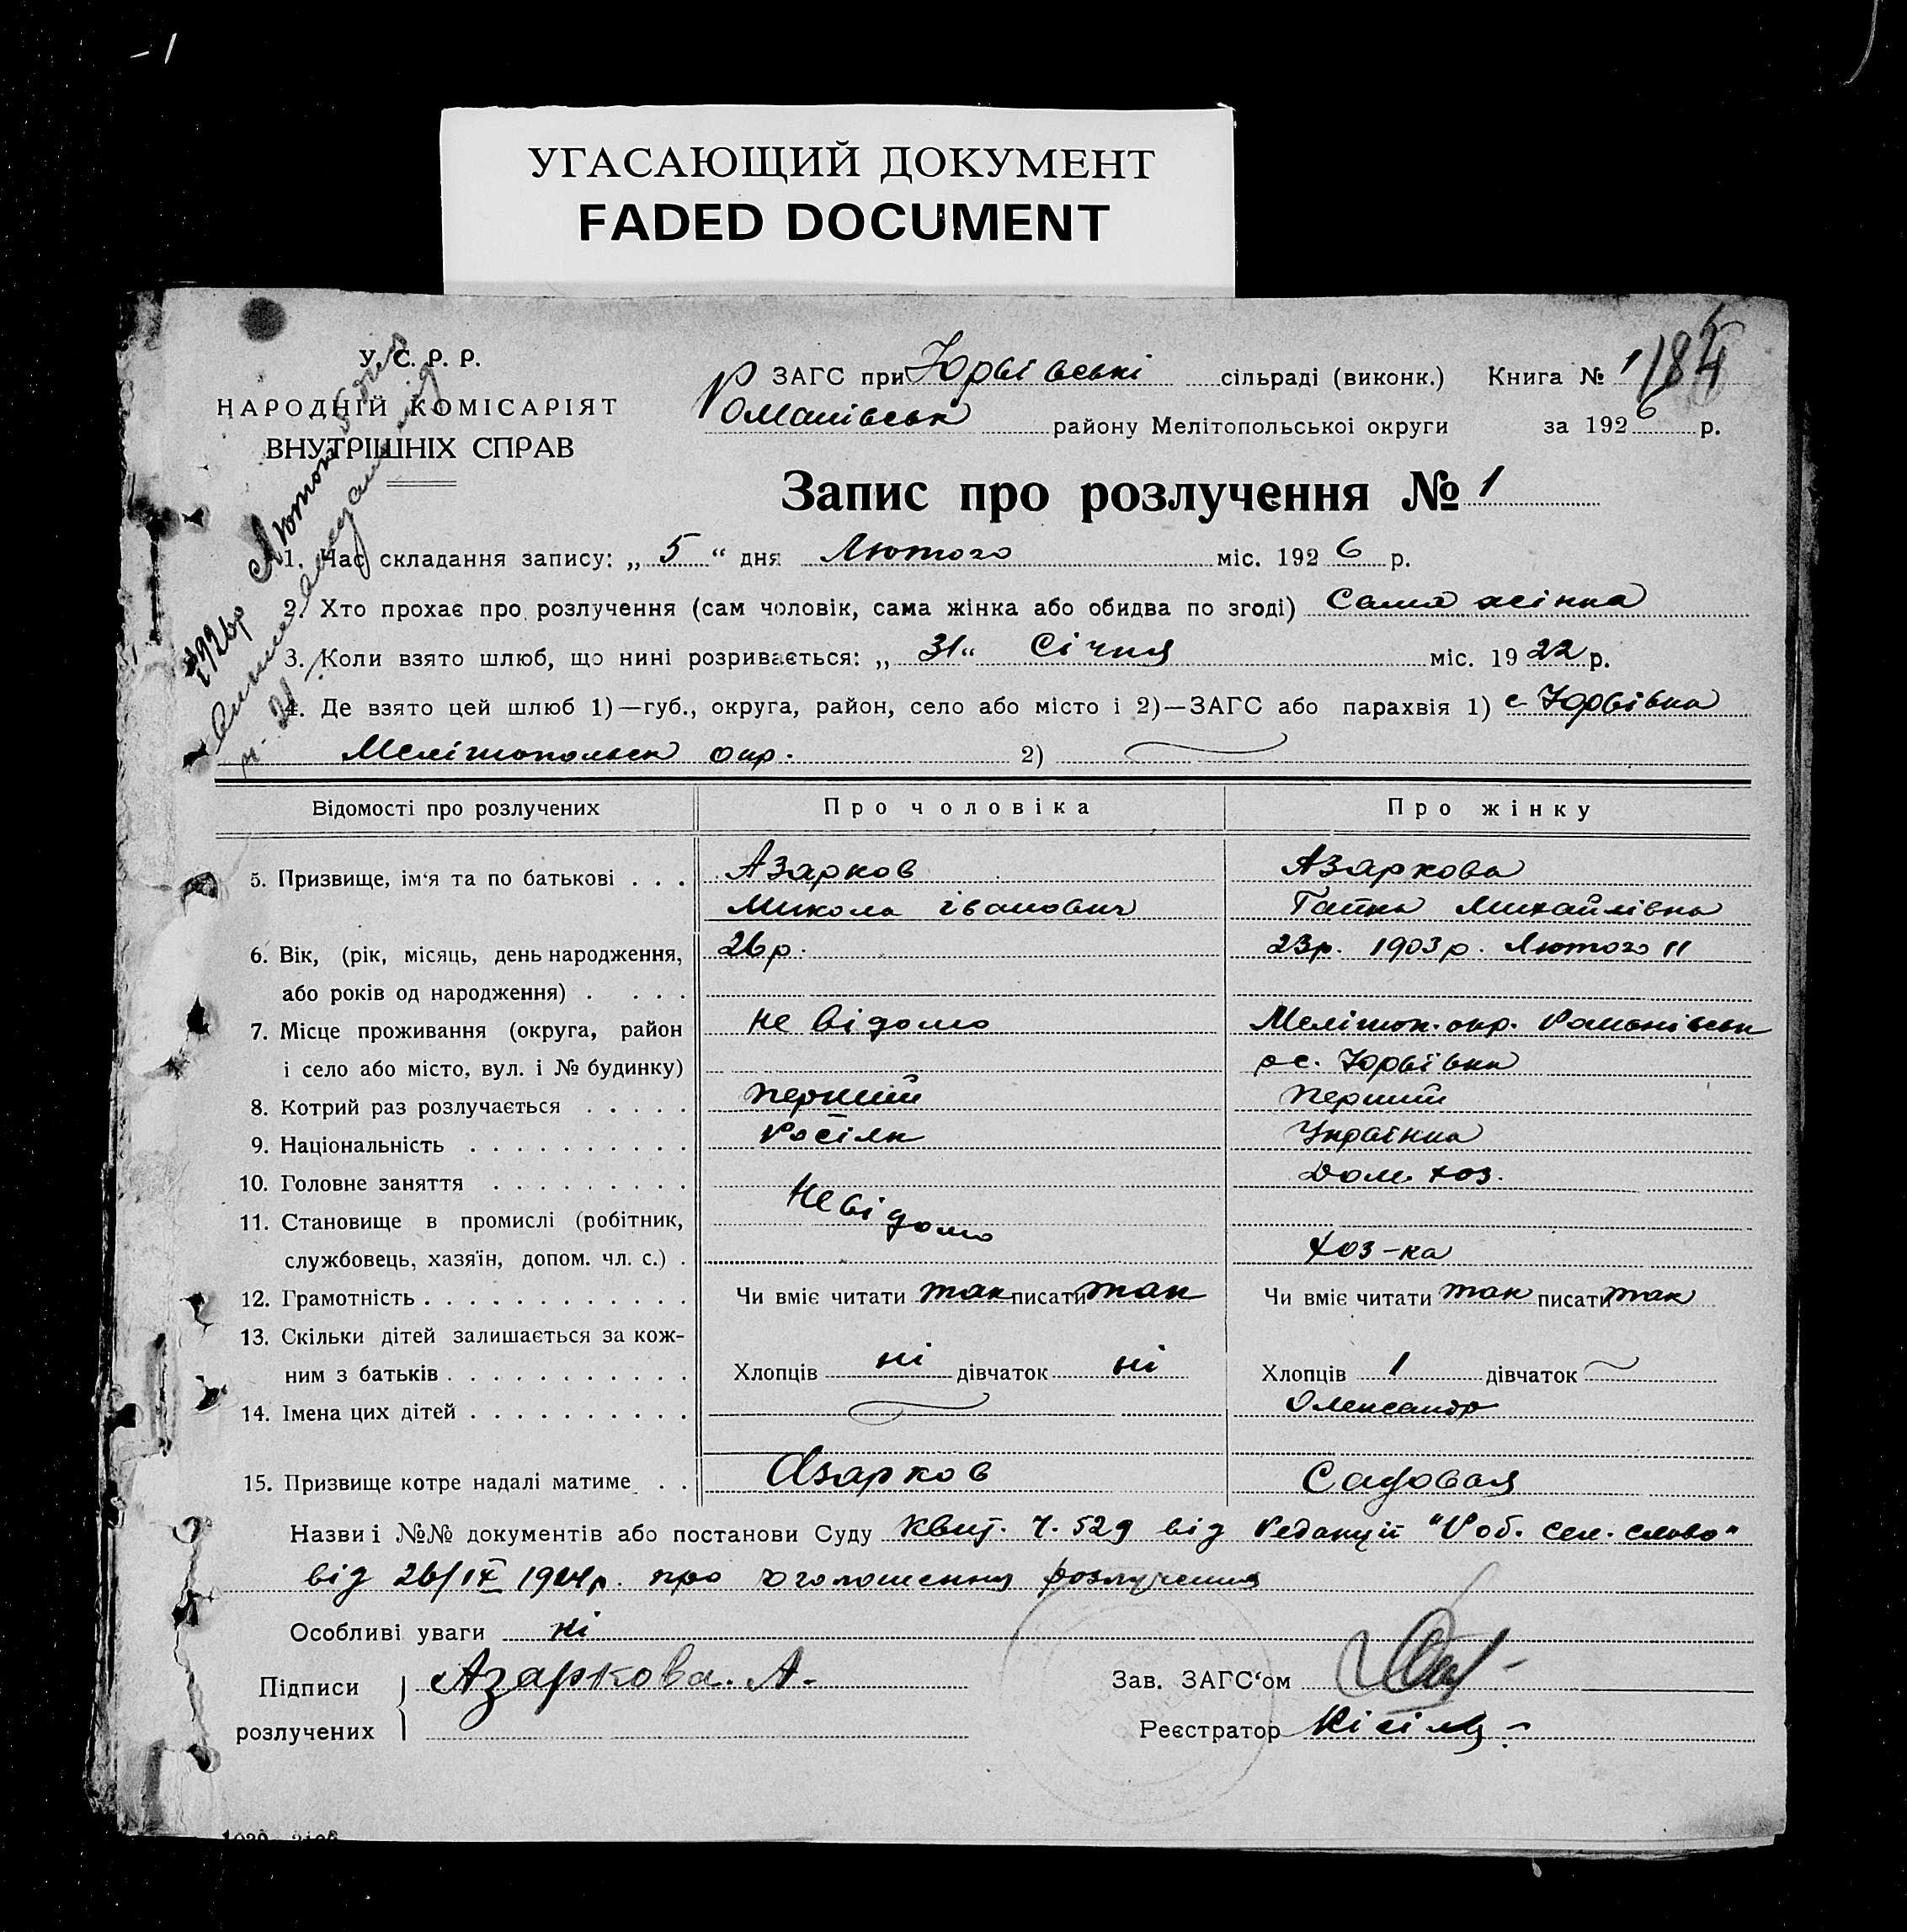 УГАСАЮЩИЙ ДОКУМЕНТ
FADED DOCUMENT
У. С. Р. Р.
НАРОДНІЙ КОМІСАРІЯТ
ВНУТРІШНІХ СПРАВ
ЗАГС при Юріївські сільраді (виконк.) Книга № 1
Романівськ району Мелітопольської округи за 1926 р.
Запис про розлучення № 1
1. Час складання запису: „ 5 “ дня Лютого міс. 1926 р.
2. Хто прохає про розлучення (сам чоловік, сама жінка або обидва по згоді) Сама жінка
3. Коли взято шлюб, що нині розривається: „ 31 “ Січня міс. 1922 р.
4. Де взято цей шлюб 1)—губ., округа, район, село або місто і 2)—ЗАГС або парахвія 1) с Юріївка
Мелітопольск окр. 2)
Відомості про розлучених Про чоловіка Про жінку
5. Призвище, ім'я та по батькові . . . Азарков Азаркова
Микола Іванович Ганна Михайлівна
6. Вік, (рік, місяць, день народження, 26 р. 23р. 1903 р. Лютого 11
або років од народження) . . . .
7. Місце проживання (округа, район не відомо Меліток. окр. Романівськ
і село або місто, вул. і № будинку) рс. Юріївка
8. Котрий раз розлучається . . . . . перший Перший
9. Національність . . . . . . . . . . Росіян Українка
10. Головне заняття . . . . . . . . . Невідомо Дом. хоз.
11. Становище в промислі (робітник,
службовець, хазяїн, допом. чл. с.) . хоз-ка
12. Грамотність . . . . . . . . . . . . . Чи вміє читати так писати так Чи вміє читати так писати так
13. Скільки дітей залишається за кож-
ним з батьків . . . . . . . . . . . Хлопців ні дівчаток ні Хлопців 1 дівчаток
14. Імена цих дітей . . . . . . . . . . Олександр
15. Призвище котре надалі матиме . . Азарков Садовая
Назви і №№ документів або постанови Суду Квит. ч. 529 від Редакції "Роб. сел. слово"
від 26/IX 1924р. про оголошення розлучення
Особливі уваги ні
Підписи Азаркова. А. Зав. ЗАГС'ом
розлучених Реєстратор Кісіль